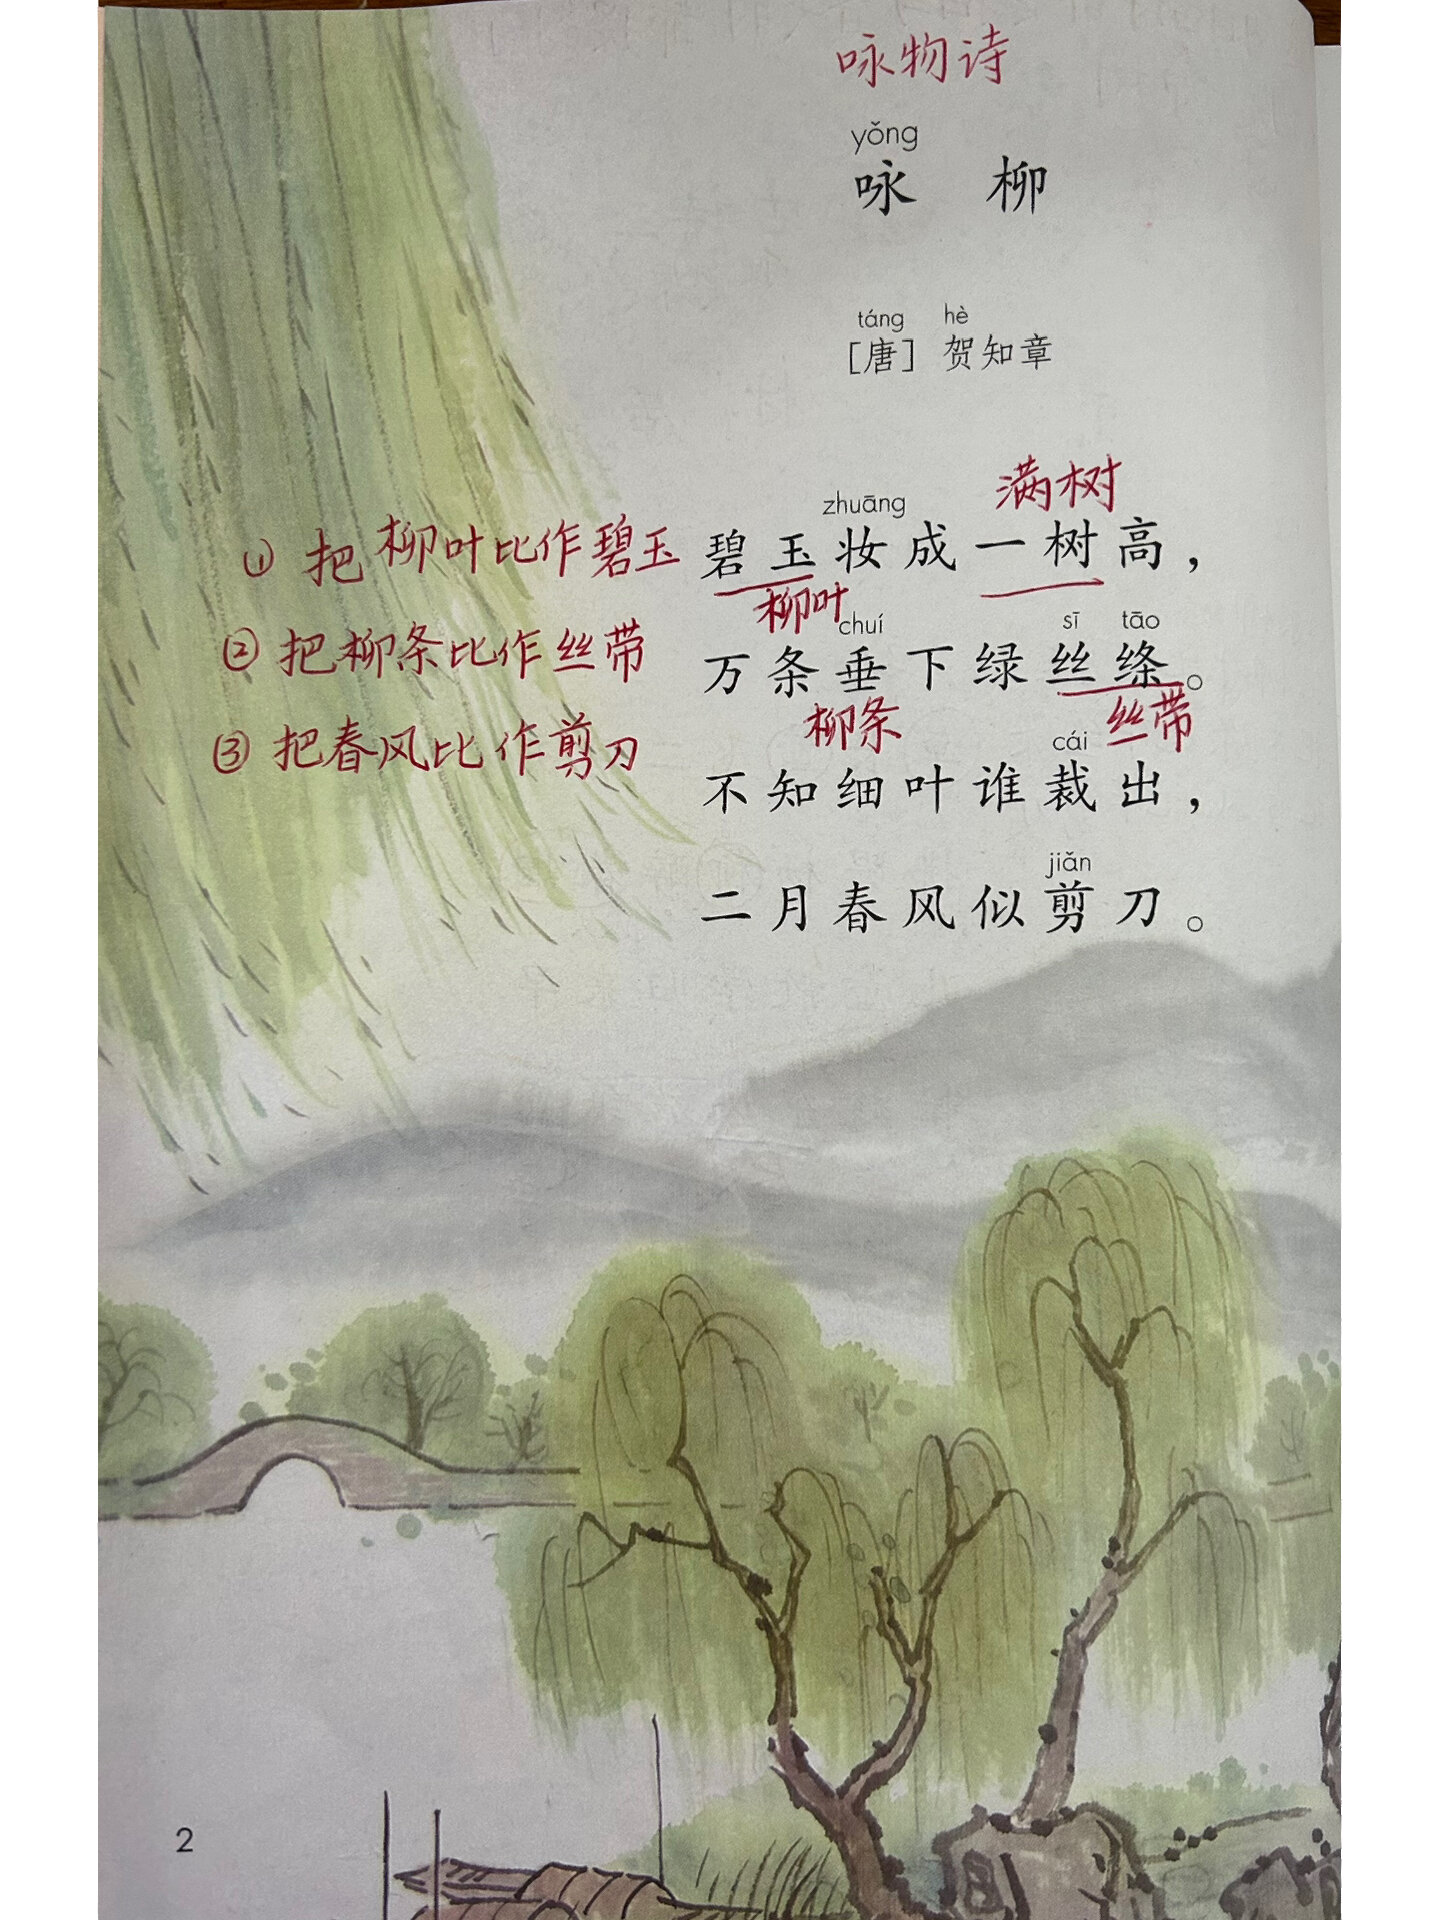 咏物诗
yǒng
咏 柳
táng hè
[唐] 贺知章
满树
zhuāng
① 把柳叶比作碧玉 碧玉妆成一树高，
柳叶
chuí sī tāo
② 把柳条比作丝带 万条垂下绿丝绦。
柳条 丝带
cái
③ 把春风比作剪刀 不知细叶谁裁出，
jiǎn
二月春风似剪刀。
2